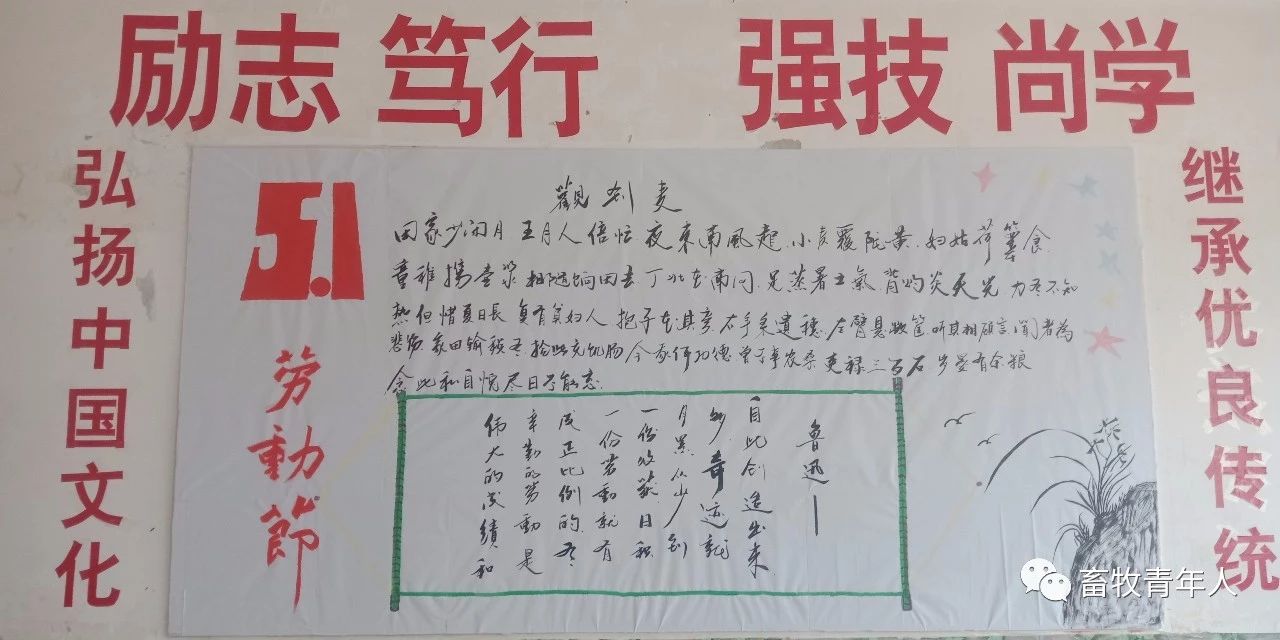 励志 笃行 强技 尚学
弘扬中国文化
5.1
劳動節
觀刈麦
田家少闲月.五月人倍忙 夜来南風起.小麦覆陇黄.妇姑荷箪食
童稚携壶浆 相随饷田去 丁壮在南冈.足蒸暑土氣 背灼炎天光 力尽不知
热但惜夏日長 复有贫妇人 抱子在其旁 右手秉遺穗 左臂悬敝筐 听其相顾言闻者為
悲伤 家田输税尽.拾此充饥肠 今我何功德 曾不事农桑 吏禄三百石 岁晏有余粮
念此私自愧 尽日不能忘.
伟大的成绩和
辛勤的劳動是
成正比例的.有
一份劳動就有
一份收获日积
月累从少到
多.奇迹就
自此创造出来
鲁迅—
继承优良传统
畜牧青年人